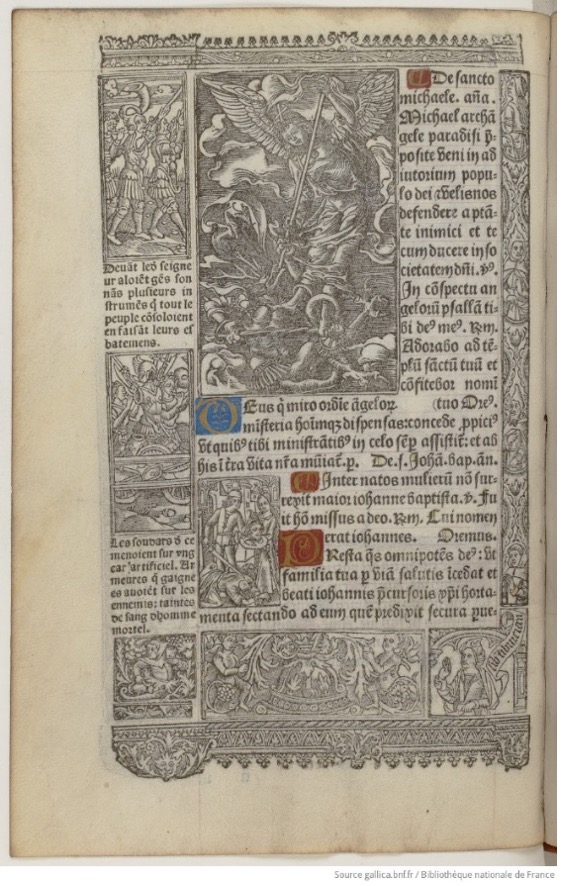 De sancto
michaele. aña.
Michael archã
gele paradisi p̄-
posite veni in ad
iutorium popu-
lo dei & velis nos
defendere a ptã-
te inimici et te
cum ducere in so
cietatem dñi. v̄ꝰ.
In cõspectu an
geloruʒ psallã ti-
bi deꝰ meꝰ. R̄m.
Adorabo ad tẽ-
plũ sãctũ tuũ et
cõfitebor nomi
(tuo Oreꝰ.
DEus q̇ miro ordie ãgeloꝝ
misteria hoĩmqʒ dispensas: concede ꝓpiciꝰ
vt quibꝰ tibi ministrãtibꝰ in celo sẽp assistit̃: et ab
his ĩ tr̃a vita nr̃a muniat̃. p. De. s. Johã. bap. an.
INter natos mulierũ nõ sur-
rexit maior iohanne baptista. v̄. Fu
it hõ missus a deo. R̄m. Cui nomen
erat iohannes. Oremus.
PResta q̄s omnipotẽs deꝰ: vt
familia tua p viã salutis ĩcedat et
beati iohannis p̄cursoris xp̄i horta-
menta sectando ad eum quẽ predixit secura ꝑue-
Deuãt les seigne
ur aloiẽt gẽs son
nãs plusieurs in
strumẽs q̃ tout le
peuple cõsoloient
en faisãt leurs es
batemens.
Les soudars d̃ ce
menoient sur vng
car artificiel. Ar
meures q̃ gaigne
es auoiẽt sur les
ennemis: taintes
de sang dhomme
mortel.
Source gallica.bnf.fr / Bibliothèque nationale de France